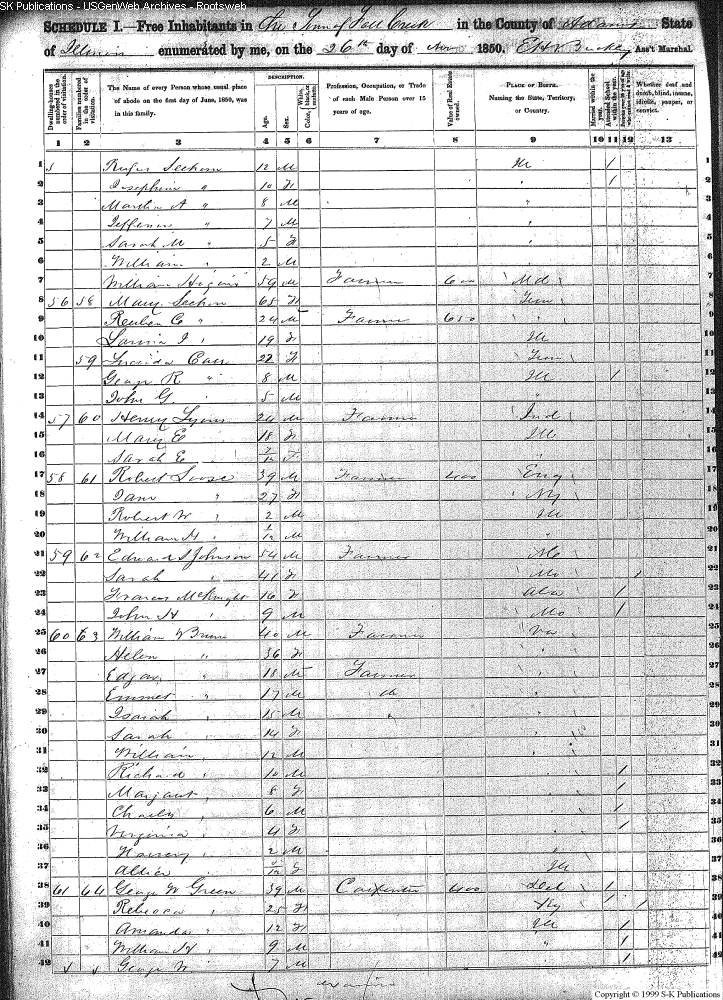 SK Publications - USGenWeb Archives - Rootsweb
SCHEDULE I.—Free Inhabitants in the Town of Fall Creek in the County of Adams State
of Illinois enumerated by me, on the 26th day of Nov 1850. Ass't Marshal.
Dwelling-houses numbered in the order of visitation.
Families numbered in the order of visitation.
The Name of every Person whose usual place of abode on the first day of June, 1850, was in this family.
DESCRIPTION.
Age.
Sex.
Color, White, black, or mulatto.
Profession, Occupation, or Trade of each Male Person over 15 years of age.
Value of Real Estate owned.
PLACE OF BIRTH. Naming the State, Territory, or Country.
Married within the year.
Attended School within the year.
Whether deaf and dumb, blind, insane, idiotic, pauper, or convict.
1 2 3 4 5 6 7 8 9 10 11 12 13
1 Rufus 12 M Ill / 1
2 Josephine " 10 F / 2
3 Martha A " 8 M " 3
4 Jefferson " 7 M 4
5 Sarah M " 5 F 5
6 William 2 M 6
7 William Higins 59 M Farmer 600 Md 7
8 56 58 Mary 65 F Tenn 8
9 Reuben C " 24 M Farmer 650 9
10 19 F Ill 10
11 59 Lucinda Carr 22 F Tenn 11
12 George R " 8 M Ill / 12
13 John G 5 M 13
14 57 60 Henry Lyons 24 M Farmer Ind 14
15 Mary E 18 F Ill 15
16 Sarah E F 16
17 58 61 Robert 39 M Farmer 400 Eng 17
18 Jane " 27 F NY 18
19 Robert W " 2 M Ill 19
20 William H " M 20
21 59 62 Edward S Johnson 54 M Farmer 21
22 Sarah 41 F Mo 22
23 Frances McKnight 16 F Ala / 23
24 John H 9 M Mo / 24
25 60 63 William W 40 M Farmer Va 25
26 Helen " 36 F 26
27 Edgar " 18 M Farmer 27
28 Emmet " 17 M do 28
29 Isaiah 15 M " 29
30 Sarah 14 F 30
31 William 12 M 31
32 Richard 10 M / 32
33 Margaret 8 F / 33
34 Charles 6 M / 34
35 Virginia 4 F / 35
36 Harvey 2 M 36
37 F Ill 37
38 61 64 George W Green 39 M Carpenter 400 Del / 38
39 Rebecca 25 F Ky 39
40 Amanda 12 F Ill / 40
41 William H 9 M " / 41
42 George W 7 M / 42
Copyright © 1999 S-K Publications